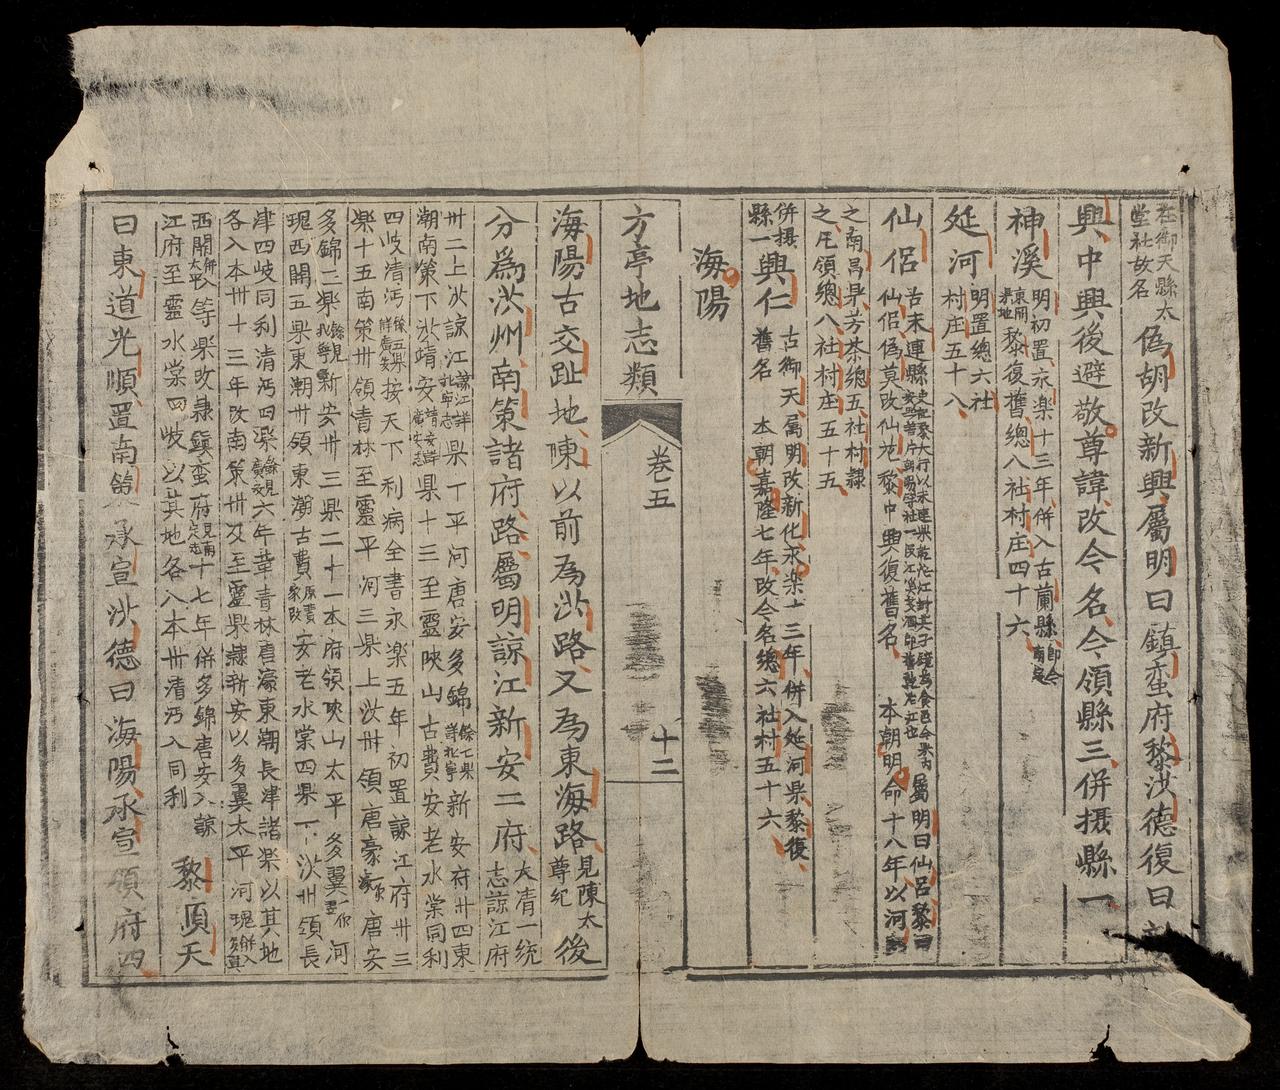 在御天縣太
堂社故名
偽胡改新興屬明曰鎮蛮府黎洪德復曰
興中興後避敬尊諱改今名今領縣三併摄縣一
神溪
明初置永楽十三年併入古蘭縣即今南真
東関県地黎復舊總八社村庄四十六
延河
明置總六社
村庄五十八
仙侣
古末連縣
仙侶偽莫改仙范黎中興復舊名
屬明曰仙呂黎曰
本朝明命十八年以河
之南昌県芳茶總五社村隸
之凡領總八社村庄五十五
併摄
縣一興仁
古御天属明改新化永楽十三年併入延河県黎復
舊名 本朝嘉隆七年改今名總六社村五十六
海陽
方亭地志類
卷五
十二
海陽古交趾地陳以前為洪路又為東海路見陳太尊紀後
分為洪州南策諸府路屬明諒江新安二府大清一統志諒江府
卅二上洪諒江諒江詳北寧志県一平河唐安多錦餘七県詳北寧新安府卅四東
潮南策下洪靖安靖安詳廣安志県十三至靈映山古費安老水棠同利
四岐清沔餘五県詳廣安按天下利病全書永楽五年初置諒江府卅三
県十五南策卅領青林至靈平河三県上洪卅領唐豪唐安
多錦三県餘見北寧新安卅三県二十一本府領映山太平多翼河
瑰西関五県東潮卅領東瀚古費安老水棠四県下洪卅領長
津四岐同利清沔四県餘見廣安六年革青林唐濠東潮長津諸県以其地
各入本卅十三年改南策卅及至靈県隷新安以多翼太平河瑰
西関等県改隷鎮蛮府見南定志十七年併多錦唐安入諒
江府至靈水棠四岐以其地各入本卅清沔入同利
黎順天
曰東道光順置南策承宣洪德曰海陽承宣領府四